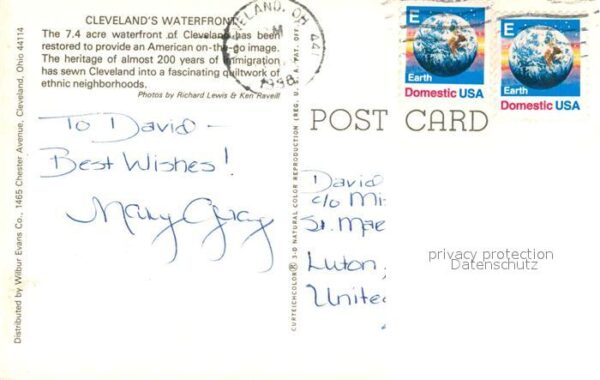 CLEVELAND'S WATERFRONT
The 7.4 acre waterfront of Cleveland has been
restored to provide an American on-the-go image.
The heritage of almost 200 years of immigration
has sewn Cleveland into a fascinating quiltwork of
ethnic neighborhoods.
Photos by Richard Lewis & Ken Raveill
To David -
Best Wishes!
Mary Gray
Distributed by Wilbur Evans Co., 1465 Chester Avenue, Cleveland, Ohio 44114
CURTEICHCOLOR® 3-D NATURAL COLOR REPRODUCTION (REG. U.S.A. PAT. OFF.)
CLEVELAND, OH 441
1998
E
Earth
Domestic USA
E
Earth
Domestic USA
POST CARD
David
c/o Mi
St. Mar
Luton,
United
privacy protection
Datenschutz